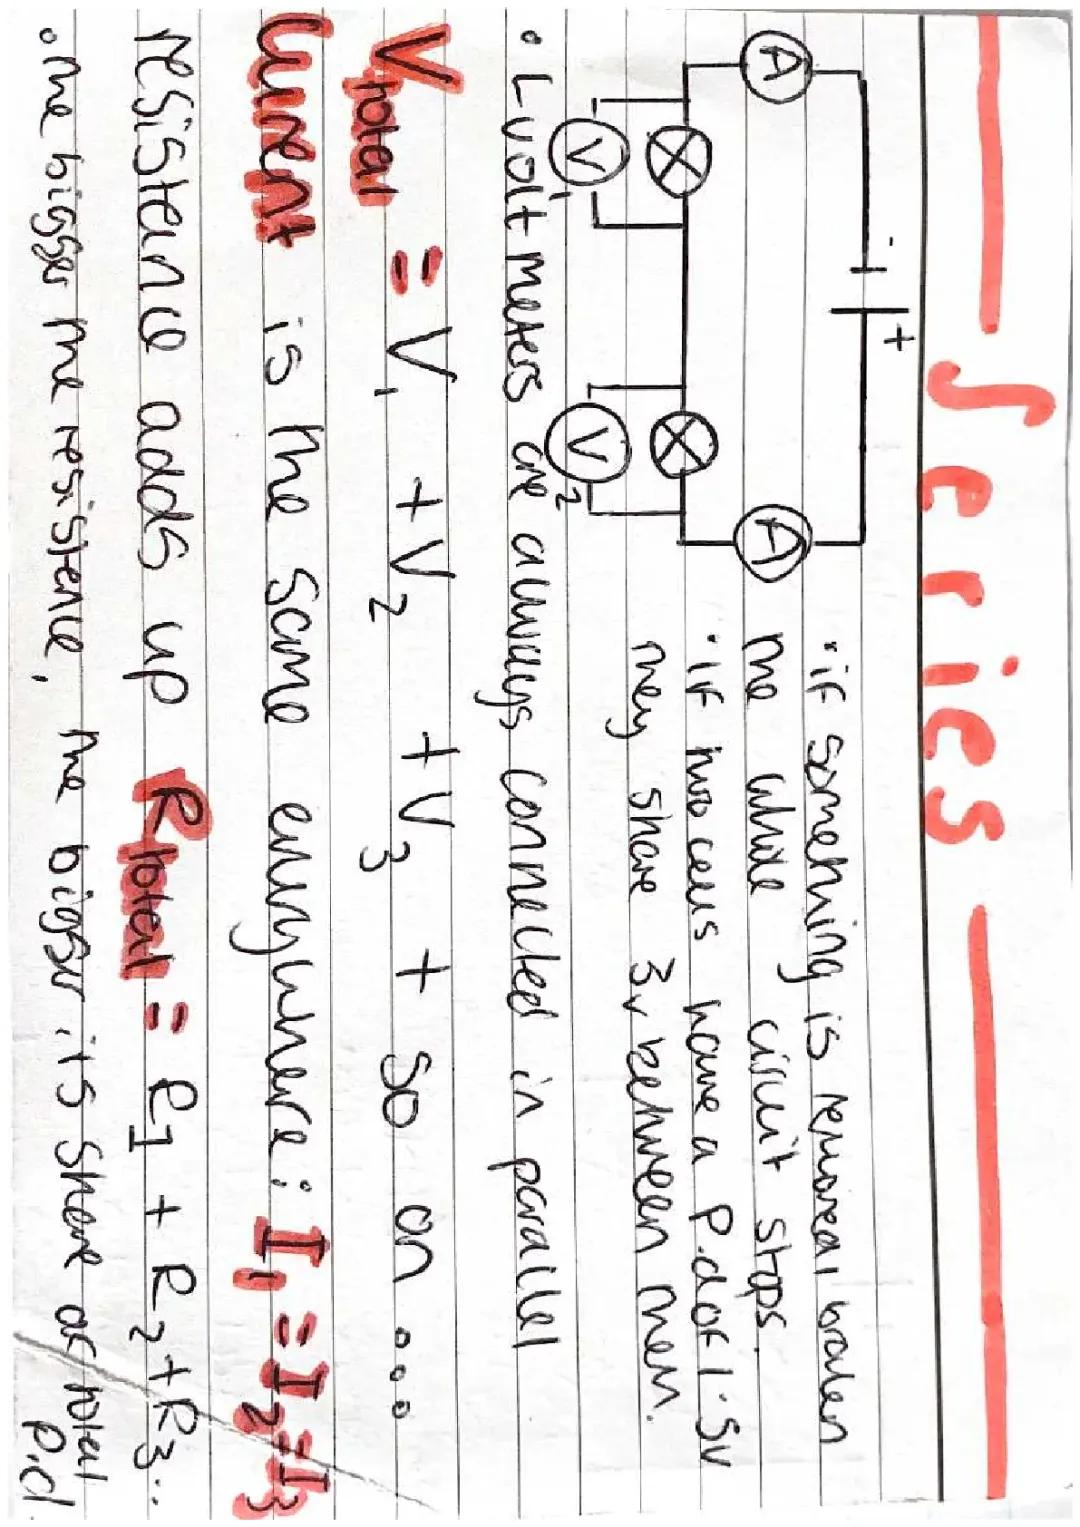 Series
- +
A A
V1 V2
• if something is removed/broken
the whole circuit stops.
• if two cells have a P.d of 1.5v
they share 3v between them.
• Lvolt meters are always connected in parallel
Vtotal = V1 + V2 + V3 + so on ...
Current is the same everywhere: I1 = I2 = I3
resistance adds up Rtotal = R1 + R2 + R3...
• The bigger the resistance, the bigger its share of total
P.d